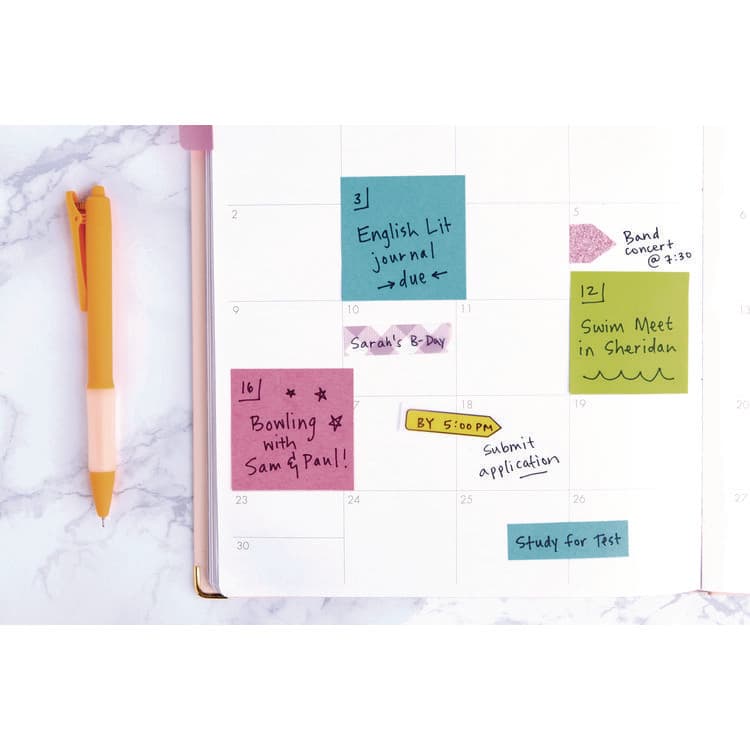 2
3
English Lit
journal
→due←
5
Band
concert
@ 7:30
6
9
10
11
12
Swim Meet
in Sheridan
13
Sarah's B-Day
16
Bowling
with
Sam & Paul!
17
18
BY 5:00 PM
Submit
application
19
20
23
24
25
26
27
Study for Test
30